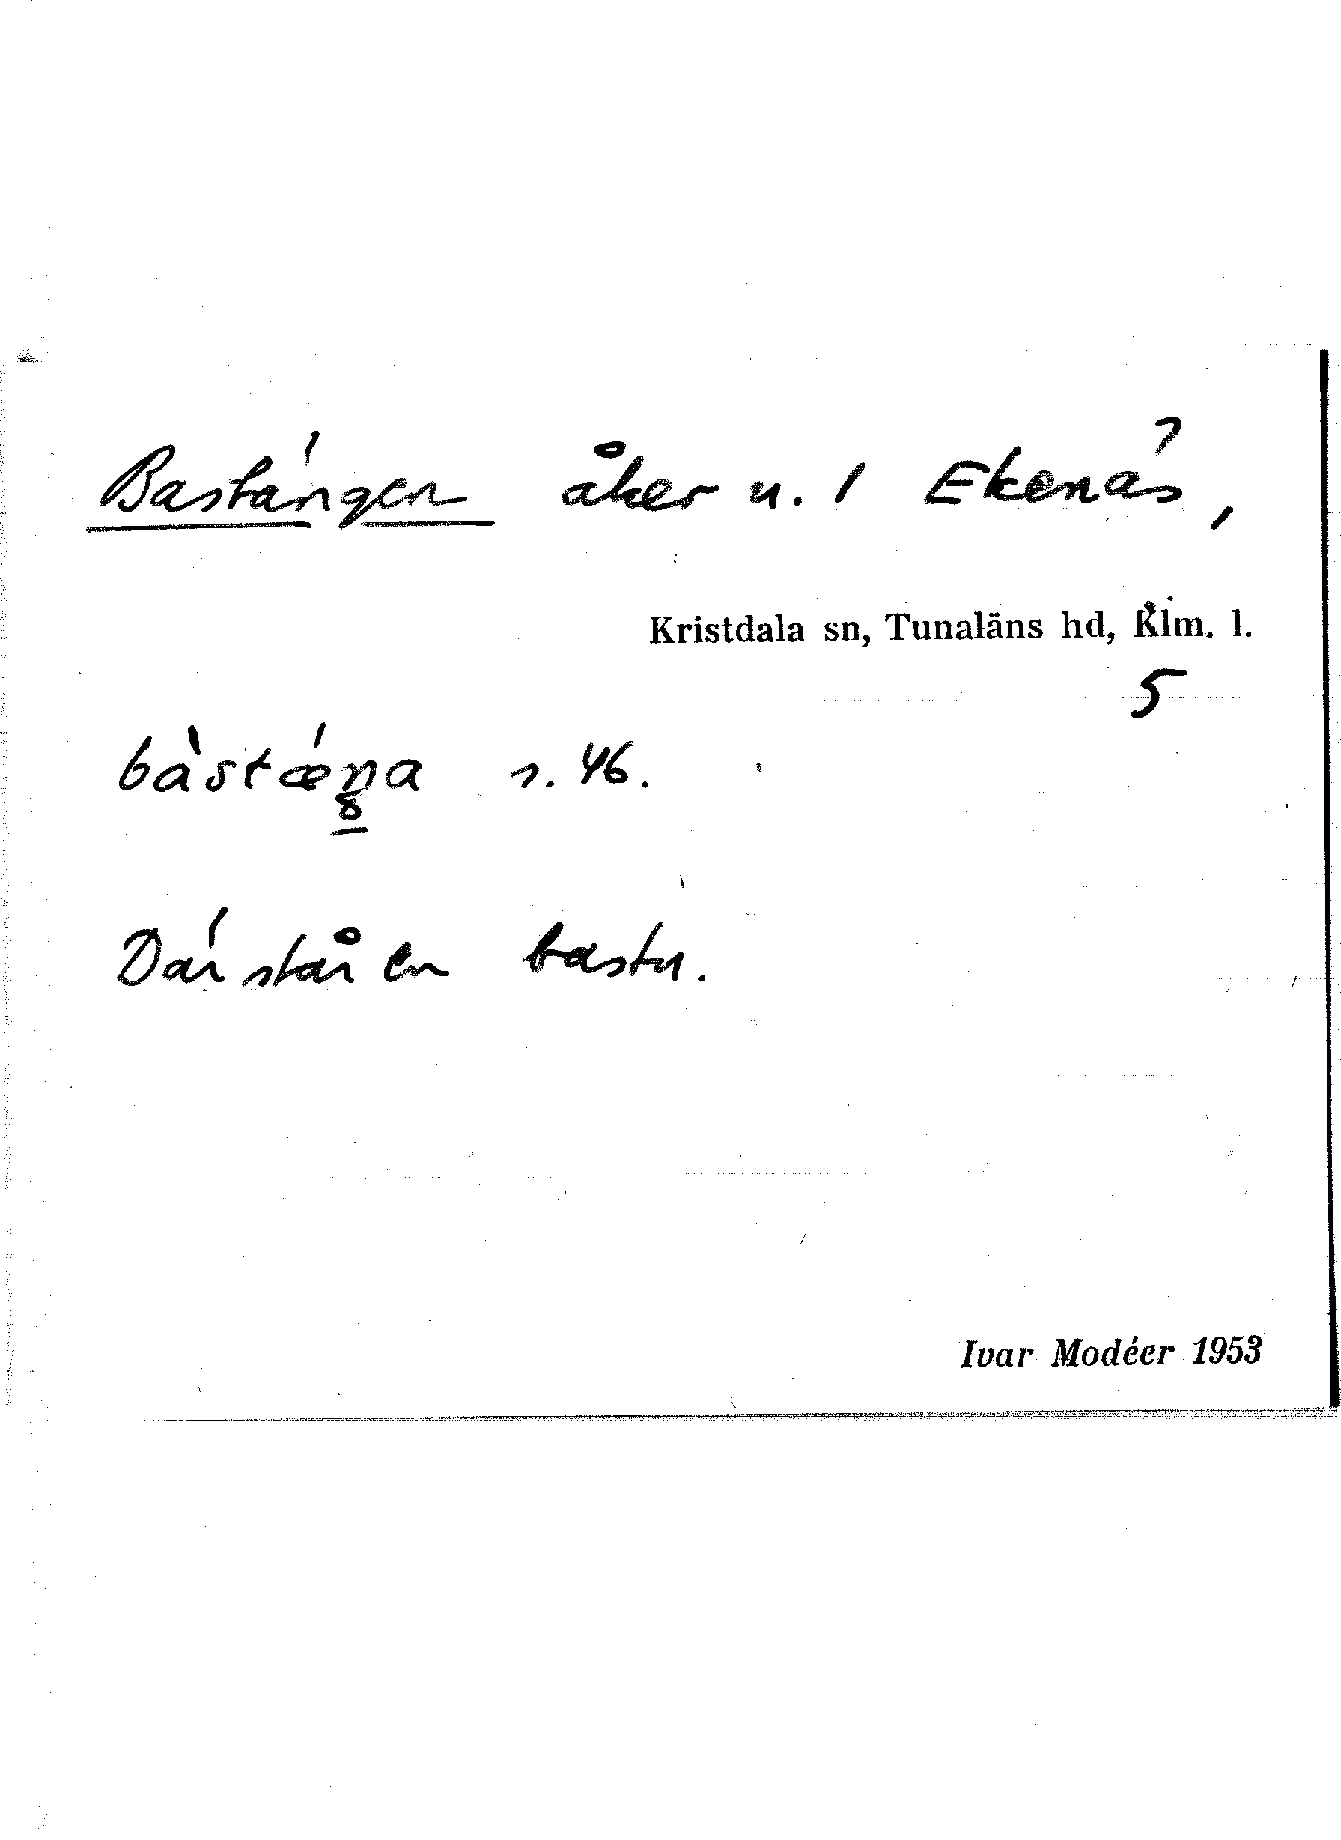 Bastängen åker u. 1 Ekenäs,
Kristdala sn, Tunaläns hd, Klm. l.
5
bàstǽŋa s. 46.
Där står en bastu.
Ivar Modéer 1953